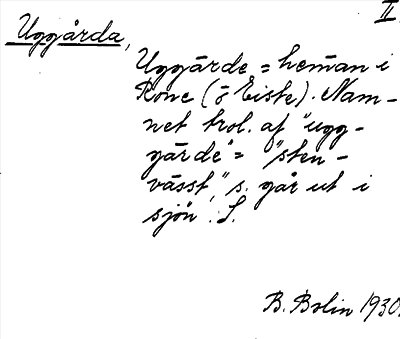 II.
Uggårda,
Uggårde = heman i
Rone (ö Eiste). Nam-
net trol. af "ugg-
gärde" = "sten-
vässt," s. går ut i
sjön. S.
B. Bolin 1930.